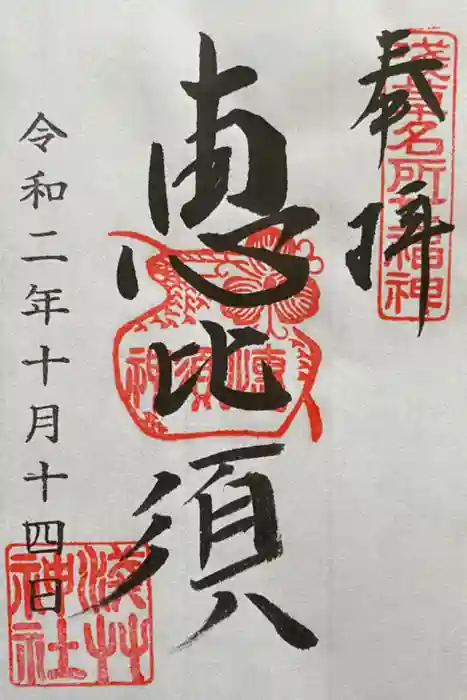 奉拝
浅草名所七福神
恵比須
令和二年十月十四日
浅草神社